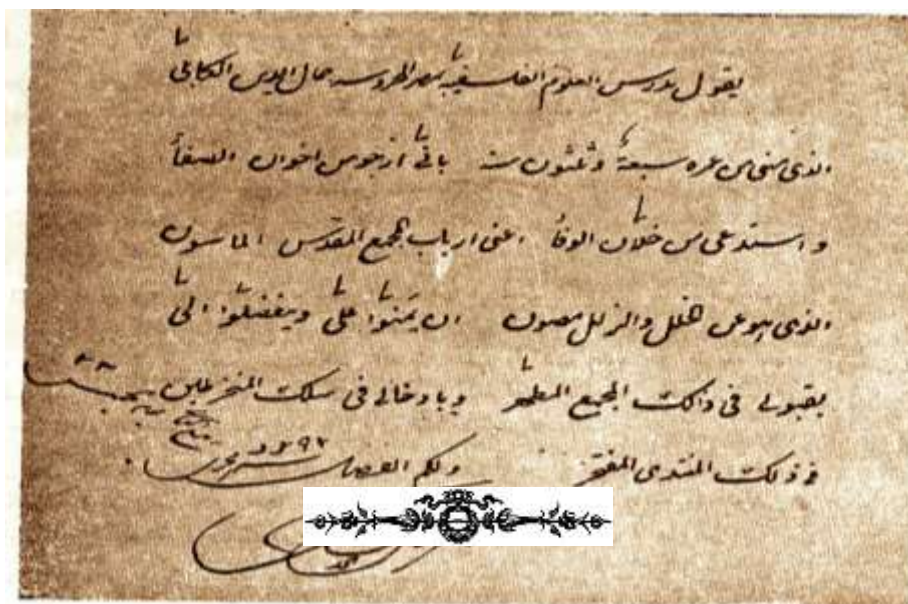 يقول مدرس العلوم الفلسفية بمصر المحروسة جمال الدين الكابلي
الذي مضى من عمره سبعة وثلثون سنة بأني أرجو من اخوان الصفا
و استدعى من خلان الوفا اعنى ارباب المجمع المقدس الماسون
الذي هو عن الخلل والزلل مصون ان يمنوا على ويتفضلوا الى
بقبولى فى ذلك المجمع المطهر و بادخالى فى سلك المنخرطين
فى ذلك المنتدى المفتخر ولكم الفضل